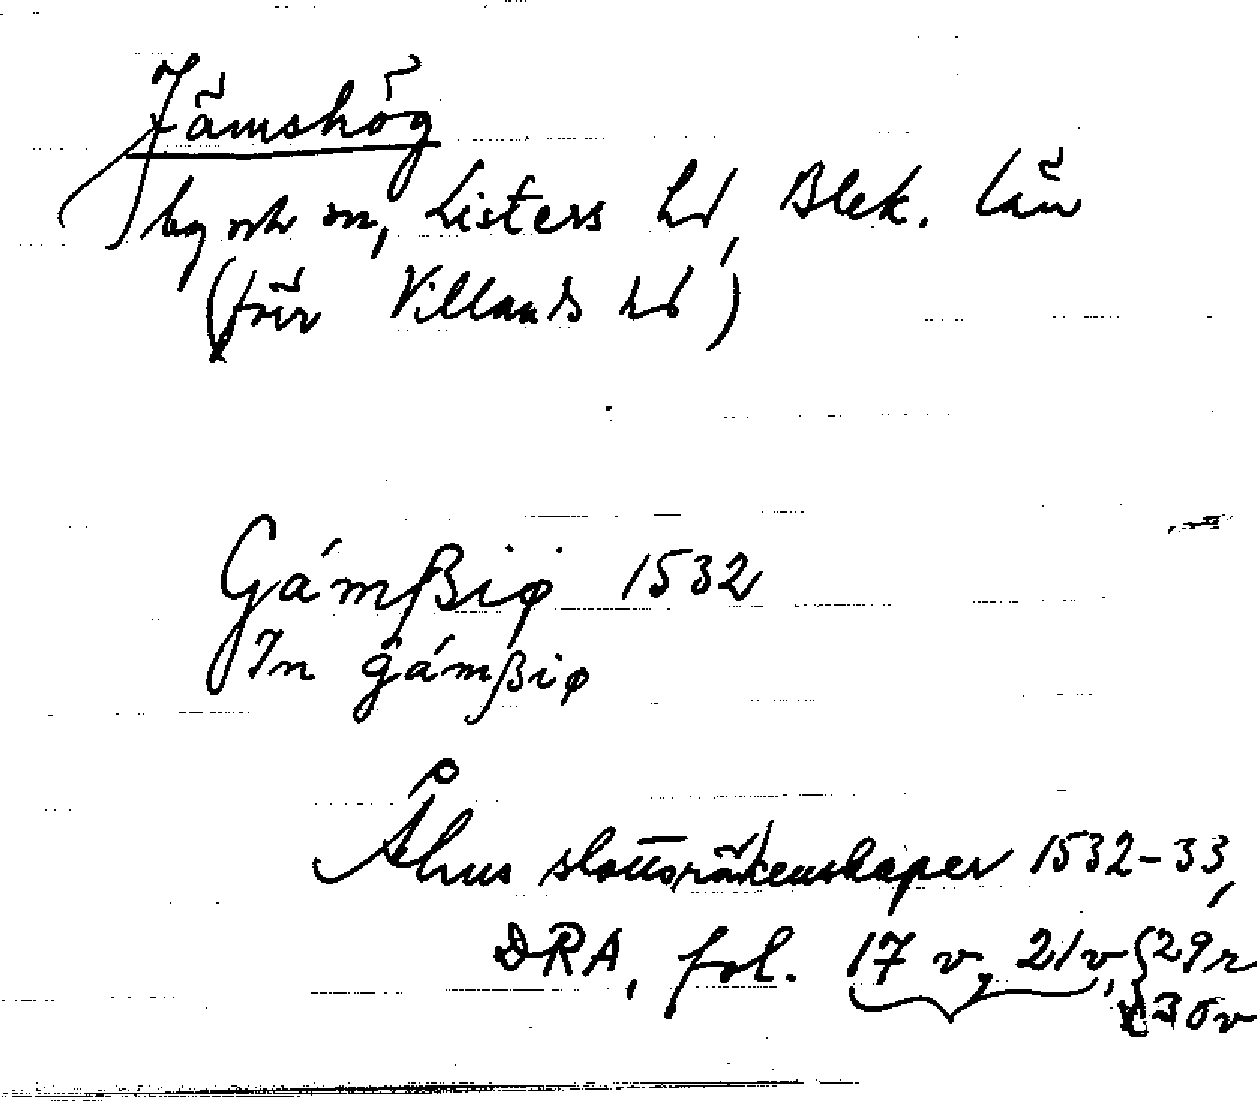 Jämshög
by och sn, Listers hd, Blek. län
(förr Villands hd)
Gámßiø 1532
In gámßiø
Åhus slottsräkenskaper 1532-33,
DRA, fol. 17 v, 21v, {29r
{30v